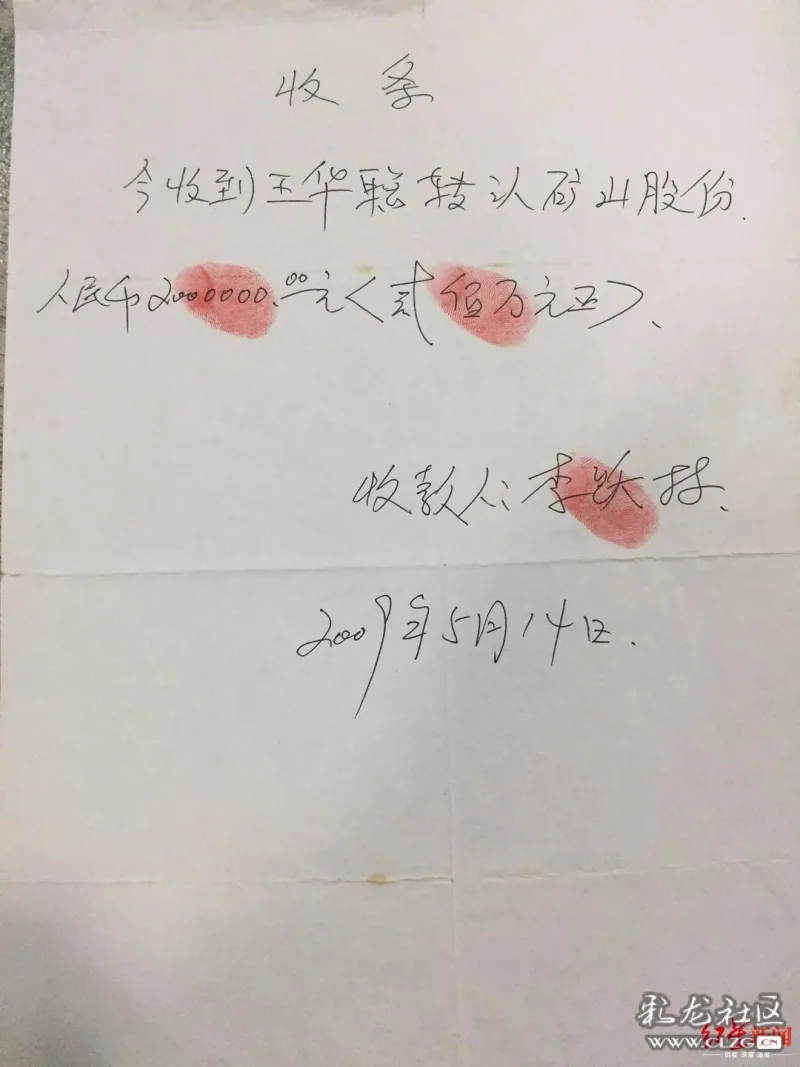 收条
今收到王华聪转让矿山股份.
人民币2000000.00元<贰佰万元正>、
收款人: 李跃林、
2009年5月14日.
彩龙社区
红星新闻
www.clzg.cn